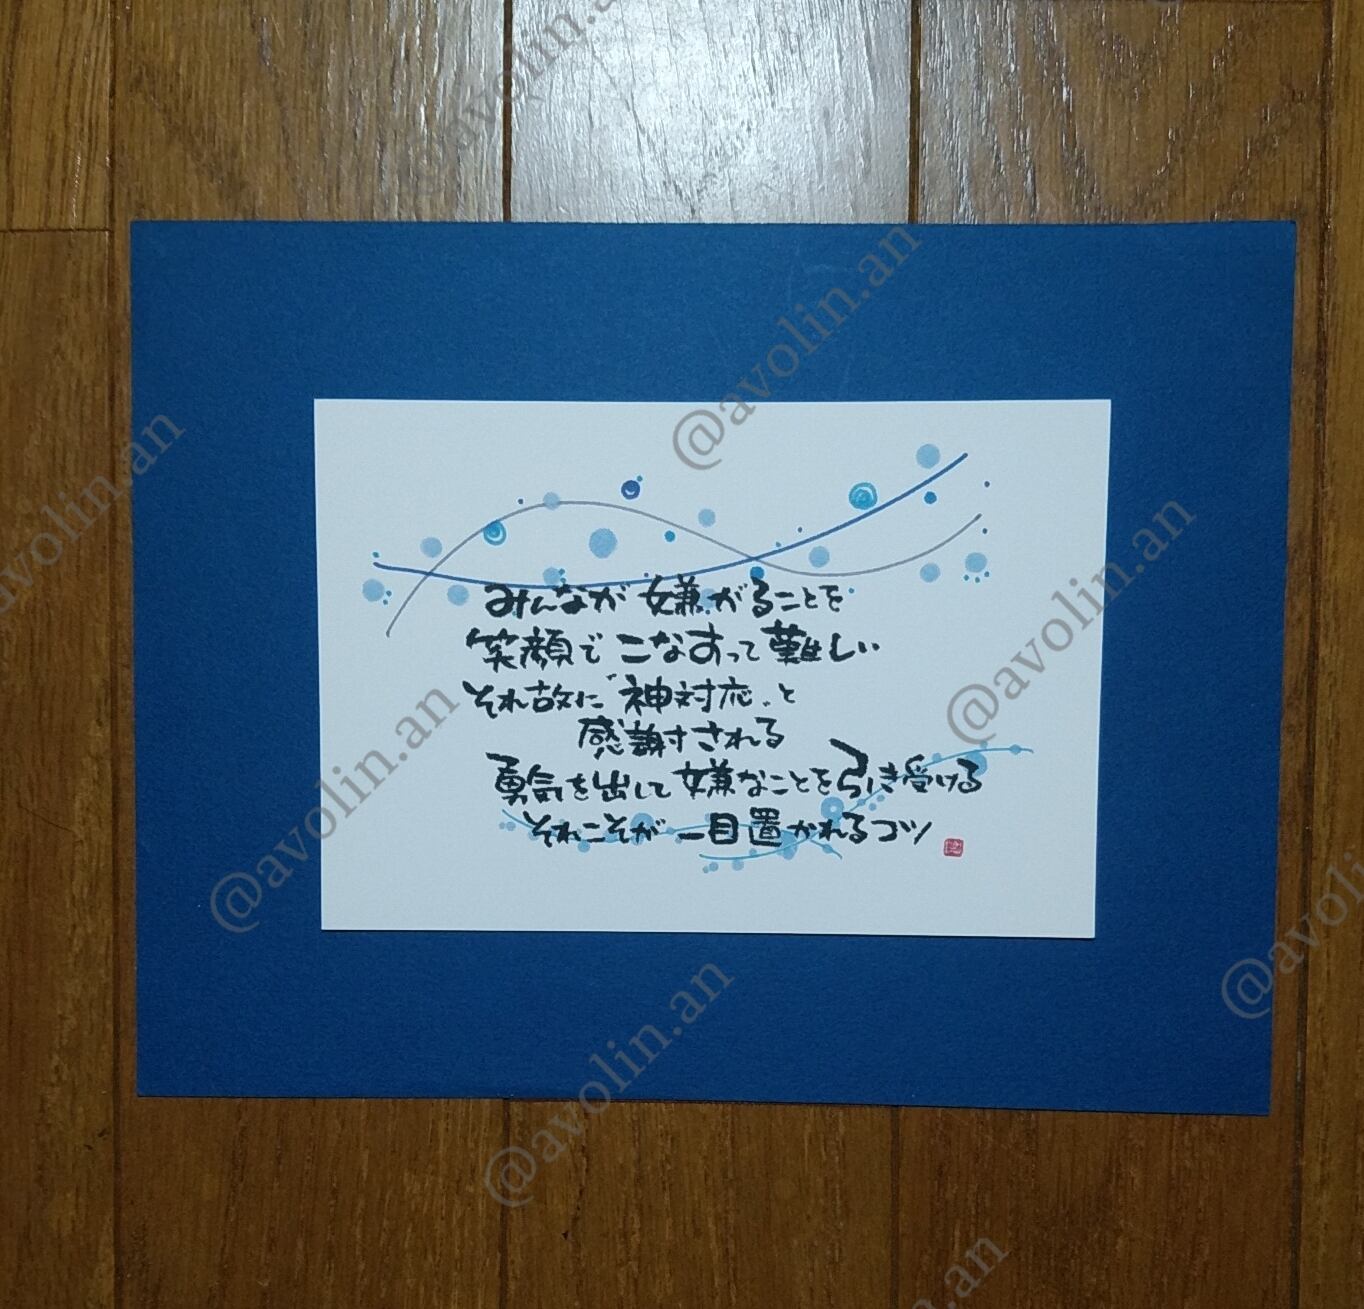 みんなが嫌がることを
笑顔でこなすって難しい
それ故に“神対応”と
感謝される
勇気を出して嫌なことを引き受ける
それこそが一目置かれるコツ
@avolin.an
@avolin.an
@avolin.an
@avolin.an
@avolin.an
@avolin.an
@avolin.an